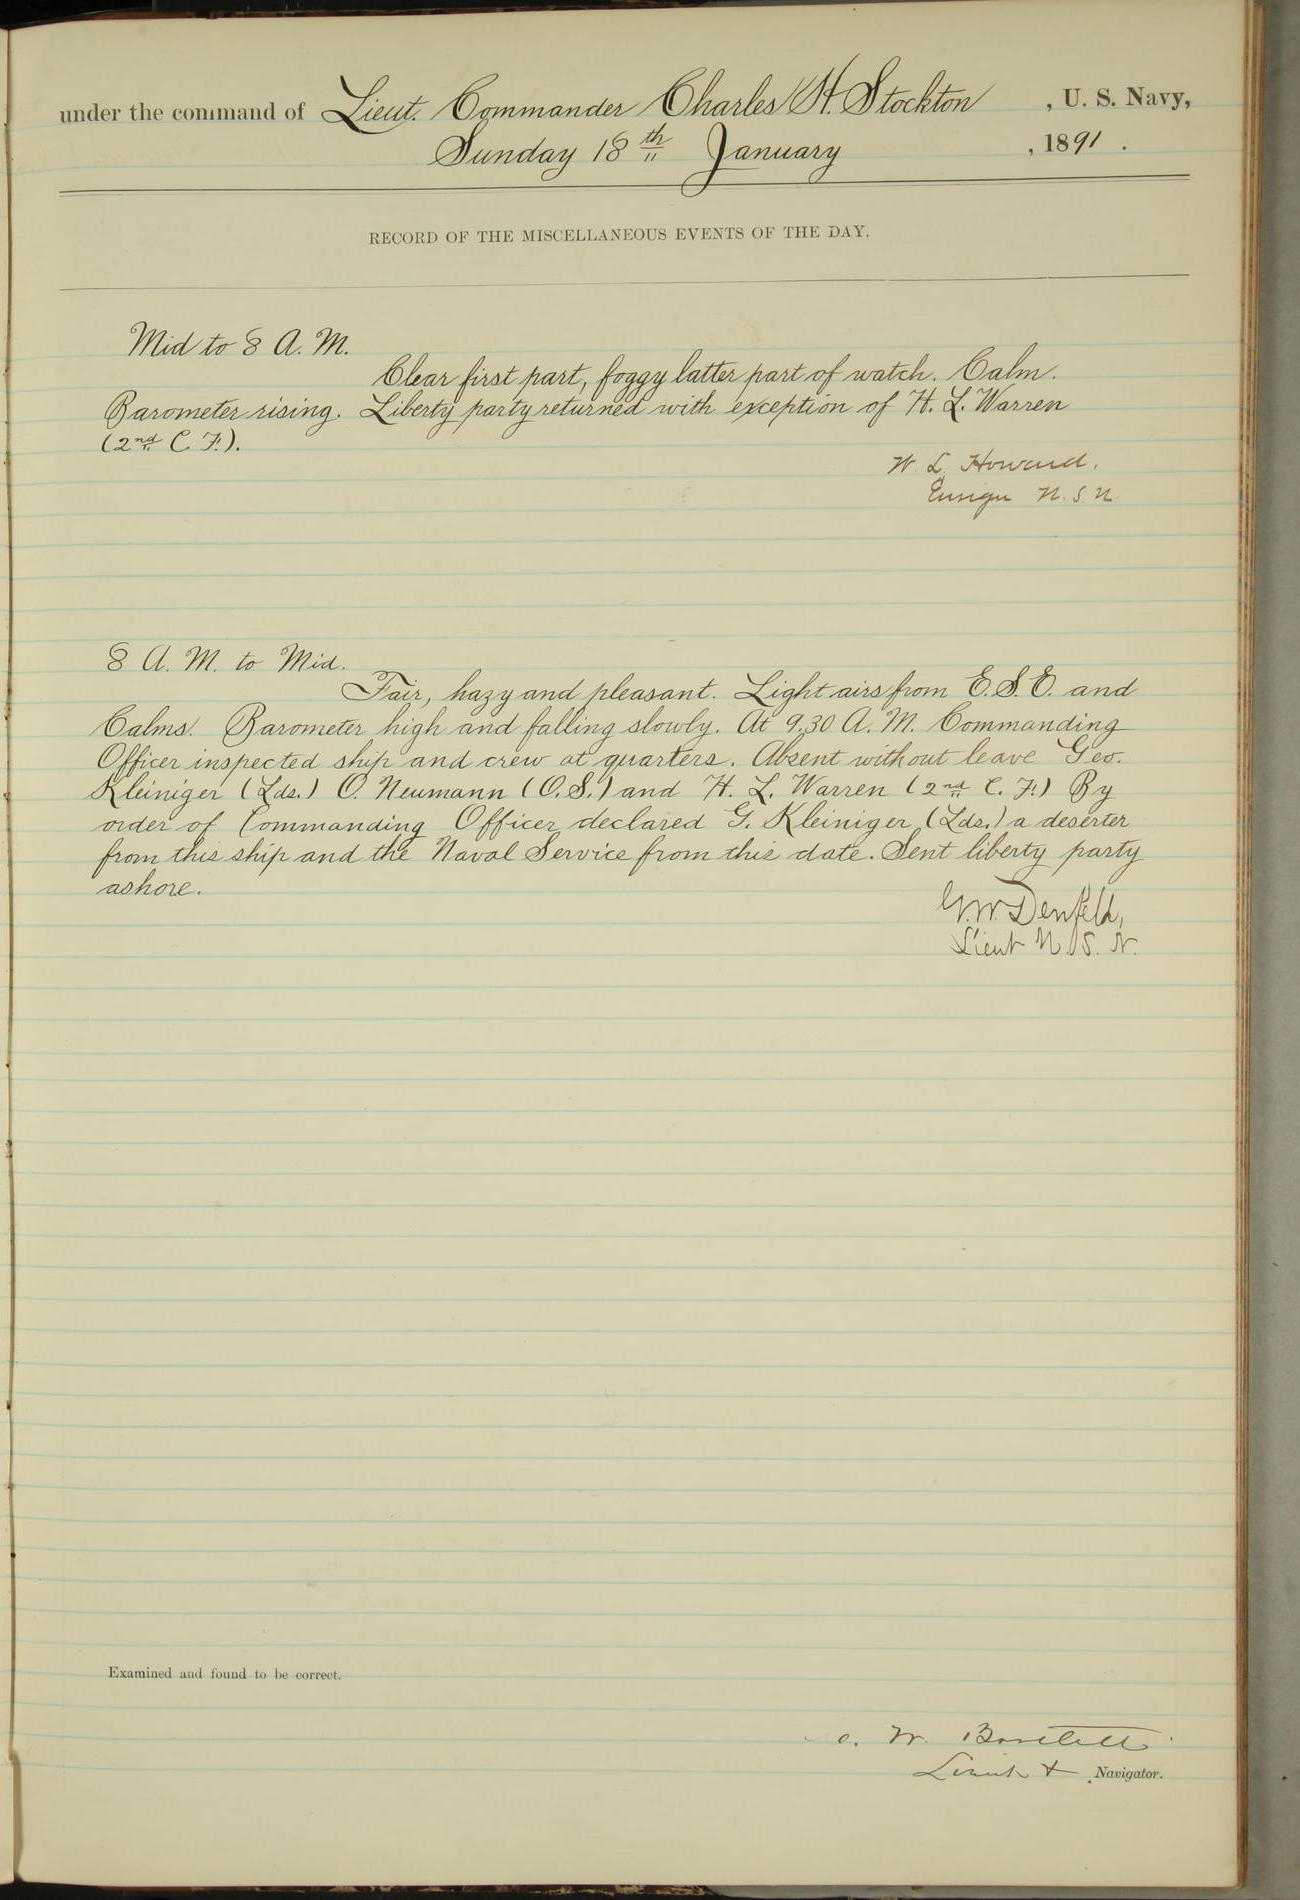 under the command of Lieut. Commander Charles H. Stockton , U. S. Navy,
Sunday 18th January , 1891 .
RECORD OF THE MISCELLANEOUS EVENTS OF THE DAY.
Mid to 8 A. M.
Clear first part, foggy latter part of watch. Calm.
Barometer rising. Liberty party returned with exception of H. L. Warren
(2nd C. F.).
W. L. Howard,
Ensign U. S. N.
8 A. M. to Mid.
Fair, hazy and pleasant. Light airs from E.S.E. and
Calms. Barometer high and falling slowly. At 9.30 A. M. Commanding
Officer inspected ship and crew at quarters. Absent without leave Geo.
Kleiniger (Lds.) O. Neumann (O.S.) and H. L. Warren (2nd C. F.) By
order of Commanding Officer declared G. Kleiniger (Lds.) a deserter
from this ship and the Naval Service from this date. Sent liberty party
ashore.
G.W. Denfeld,
Lieut U. S. N.
Examined and found to be correct.
C. W. Bartlett
Lieut & Navigator.